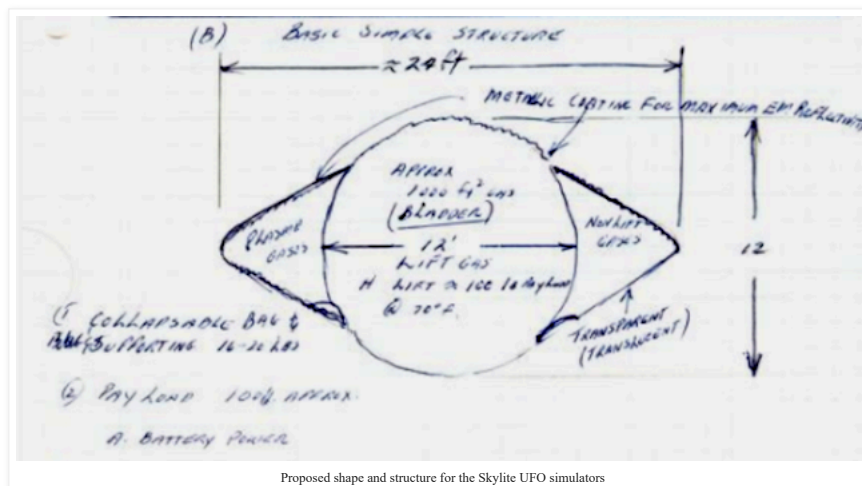 (B) BASIC SIMPLE STRUCTURE
≈ 24 ft
METALIC COATING FOR MAXIMUM EM. REFLECTIVITY
APPROX
1000 ft³ GAS
(BLADDER)
PLASMA
GASES
12'
LIFT GAS
H LIFT ≈ 100 lb PAYLOAD
@ 70°F.
NON LIFT
GASES
12
TRANSPARENT
(TRANSLUCENT)
(1 COLLAPSABLE BAG &
SUPPORTING 16-20 LBS
(2) PAYLOAD 100 APPROX.
A. BATTERY POWER
Proposed shape and structure for the Skylite UFO simulators